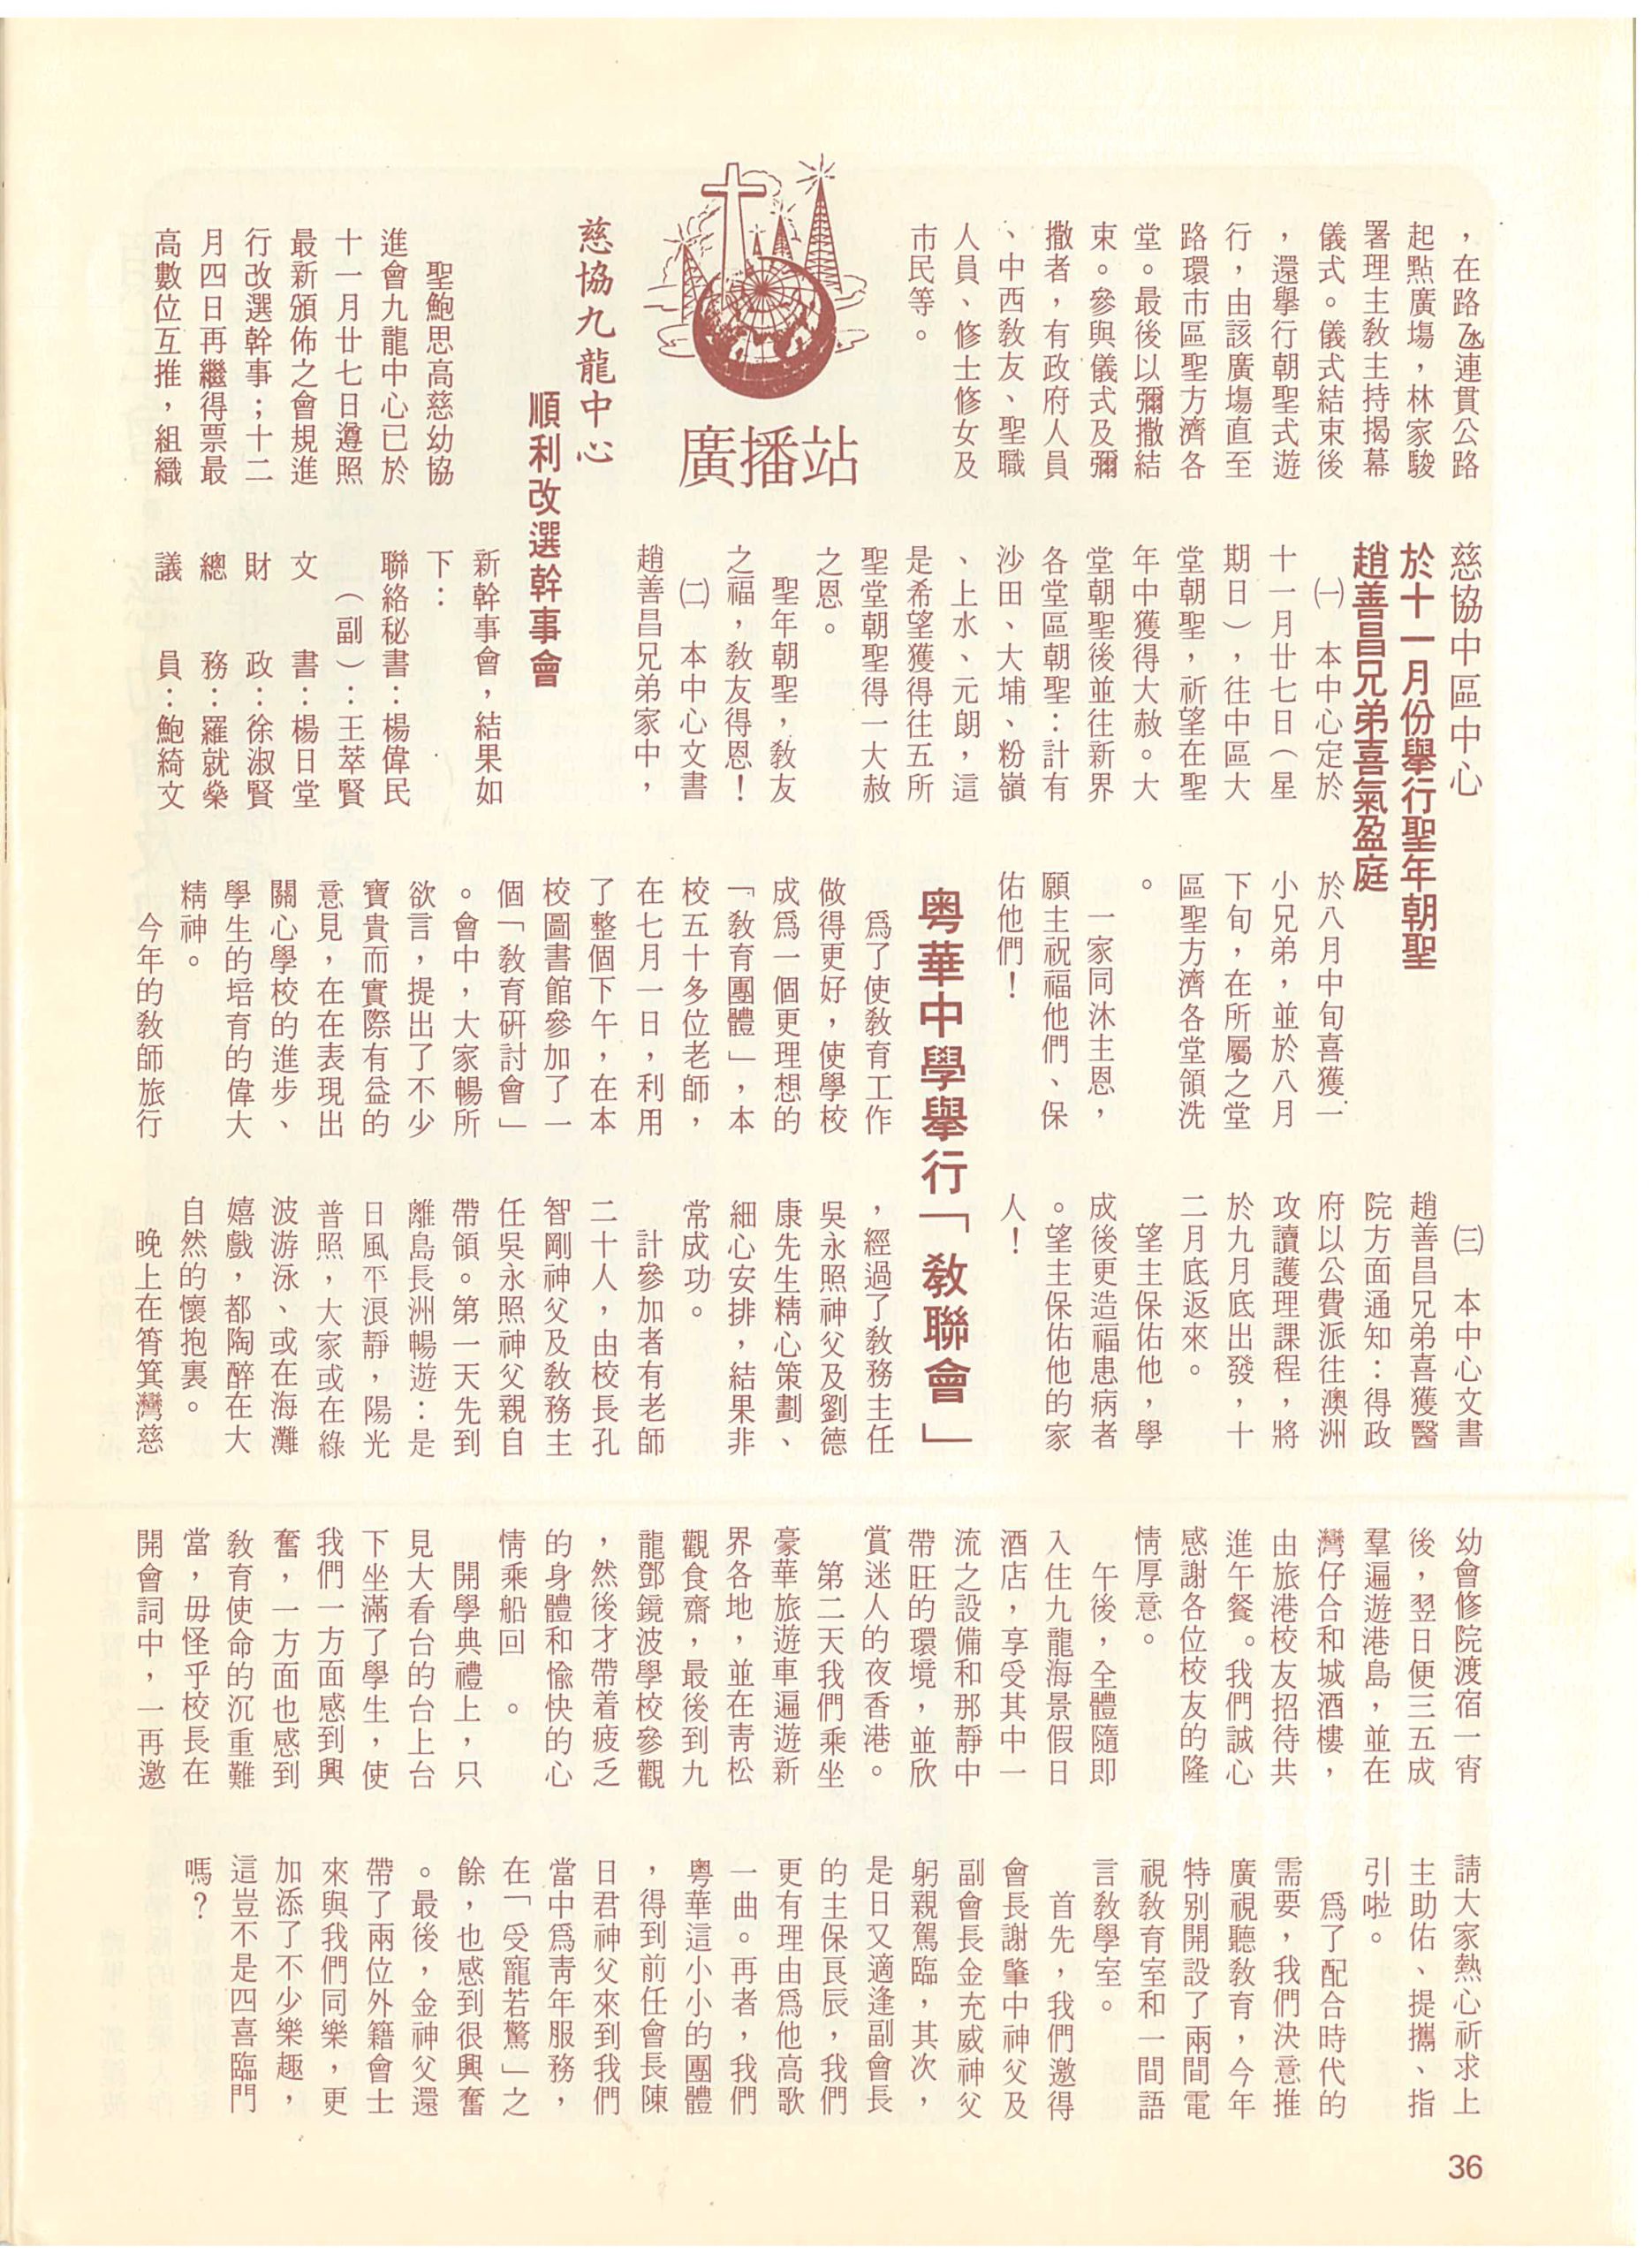 ，在路氹連貫公路
起點廣場，林家駿
署理主教主持揭幕
儀式。儀式結束後
，還擧行朝聖式遊
行，由該廣場直至
路環市區聖方濟各
堂。最後以彌撒結
束。參與儀式及彌
撒者，有政府人員
、中西敎友、聖職
人員、修士修女及
市民等。
廣播站
慈協九龍中心
順利改選幹事會
聖鮑思高慈幼協
進會九龍中心已於
十一月廿七日遵照
最新頒佈之會規進
行改選幹事；十二
月四日再繼得票最
高數位互推，組織
新幹事會，結果如
下：
聯絡秘書：楊偉民
（副）：王萃賢
文　　書：楊日堂
財　　政：徐淑賢
總　　務：羅就燊
議　　員：鮑綺文
慈協中區中心
於十一月份舉行聖年朝聖
趙善昌兄弟喜氣盈庭
㈠　本中心定於
十一月廿七日（星
期日），往中區大
堂朝聖，祈望在聖
年中獲得大赦。大
堂朝聖後並往新界
各堂區朝聖：計有
沙田、大埔、粉嶺
、上水、元朗，這
是希望獲得往五所
聖堂朝聖得一大赦
之恩。
聖年朝聖，敎友
之福，敎友得恩！
㈡　本中心文書
趙善昌兄弟家中，
於八月中旬喜獲一
小兄弟，並於八月
下旬，在所屬之堂
區聖方濟各堂領洗
。
一家同沐主恩，
願主祝福他們、保
佑他們！
㈢　本中心文書
趙善昌兄弟喜獲醫
院方面通知：得政
府以公費派往澳洲
攻讀護理課程，將
於九月底出發，十
二月底返來。
望主保佑他，學
成後更造福患病者
。望主保佑他的家
人！
粤華中學舉行「敎聯會」
爲了使敎育工作
做得更好，使學校
成爲一個更理想的
「敎育團體」，本
校五十多位老師，
在七月一日，利用
了整個下午，在本
校圖書館參加了一
個「敎育硏討會」
。會中，大家暢所
欲言，提出了不少
寶貴而實際有益的
意見，在在表現出
關心學校的進步、
學生的培育的偉大
精神。
今年的敎師旅行
，經過了敎務主任
吳永照神父及劉德
康先生精心策劃、
細心安排，結果非
常成功。
計參加者有老師
二十人，由校長孔
智剛神父及敎務主
任吳永照神父親自
帶領。第一天先到
離島長洲暢遊：是
日風平浪靜，陽光
普照，大家或在綠
波游泳、或在海灘
嬉戲，都陶醉在大
自然的懷抱裏。
晚上在筲箕灣慈
幼會修院渡宿一宵
後，翌日便三五成
羣遍遊港島，並在
灣仔合和城酒樓，
由旅港校友招待共
進午餐。我們誠心
感謝各位校友的隆
情厚意。
午後，全體隨即
入住九龍海景假日
酒店，享受其中一
流之設備和那靜中
帶旺的環境，並欣
賞迷人的夜香港。
第二天我們乘坐
豪華旅遊車遍遊新
界各地，並在青松
觀食齋，最後到九
龍鄧鏡波學校參觀
，然後才帶着疲乏
的身體和愉快的心
情乘船回　。
開學典禮上，只
見大看台的台上台
下坐滿了學生，使
我們一方面感到興
奮，一方面也感到
敎育使命的沉重難
當，毋怪乎校長在
開會詞中，一再邀
請大家熱心祈求上
主助佑、提攜、指
引啦。
爲了配合時代的
需要，我們決意推
廣視聽敎育，今年
特別開設了兩間電
視敎育室和一間語
言敎學室。
首先，我們邀得
會長謝肇中神父及
副會長金充威神父
躬親駕臨，其次，
是日又適逢副會長
的主保良辰，我們
更有理由爲他高歌
一曲。再者，我們
粤華這小小的團體
，得到前任會長陳
日君神父來到我們
當中爲靑年服務，
在「受寵若驚」之
餘，也感到很興奮
。最後，金神父還
帶了兩位外籍會士
來與我們同樂，更
加添了不少樂趣，
這豈不是四喜臨門
嗎？
36